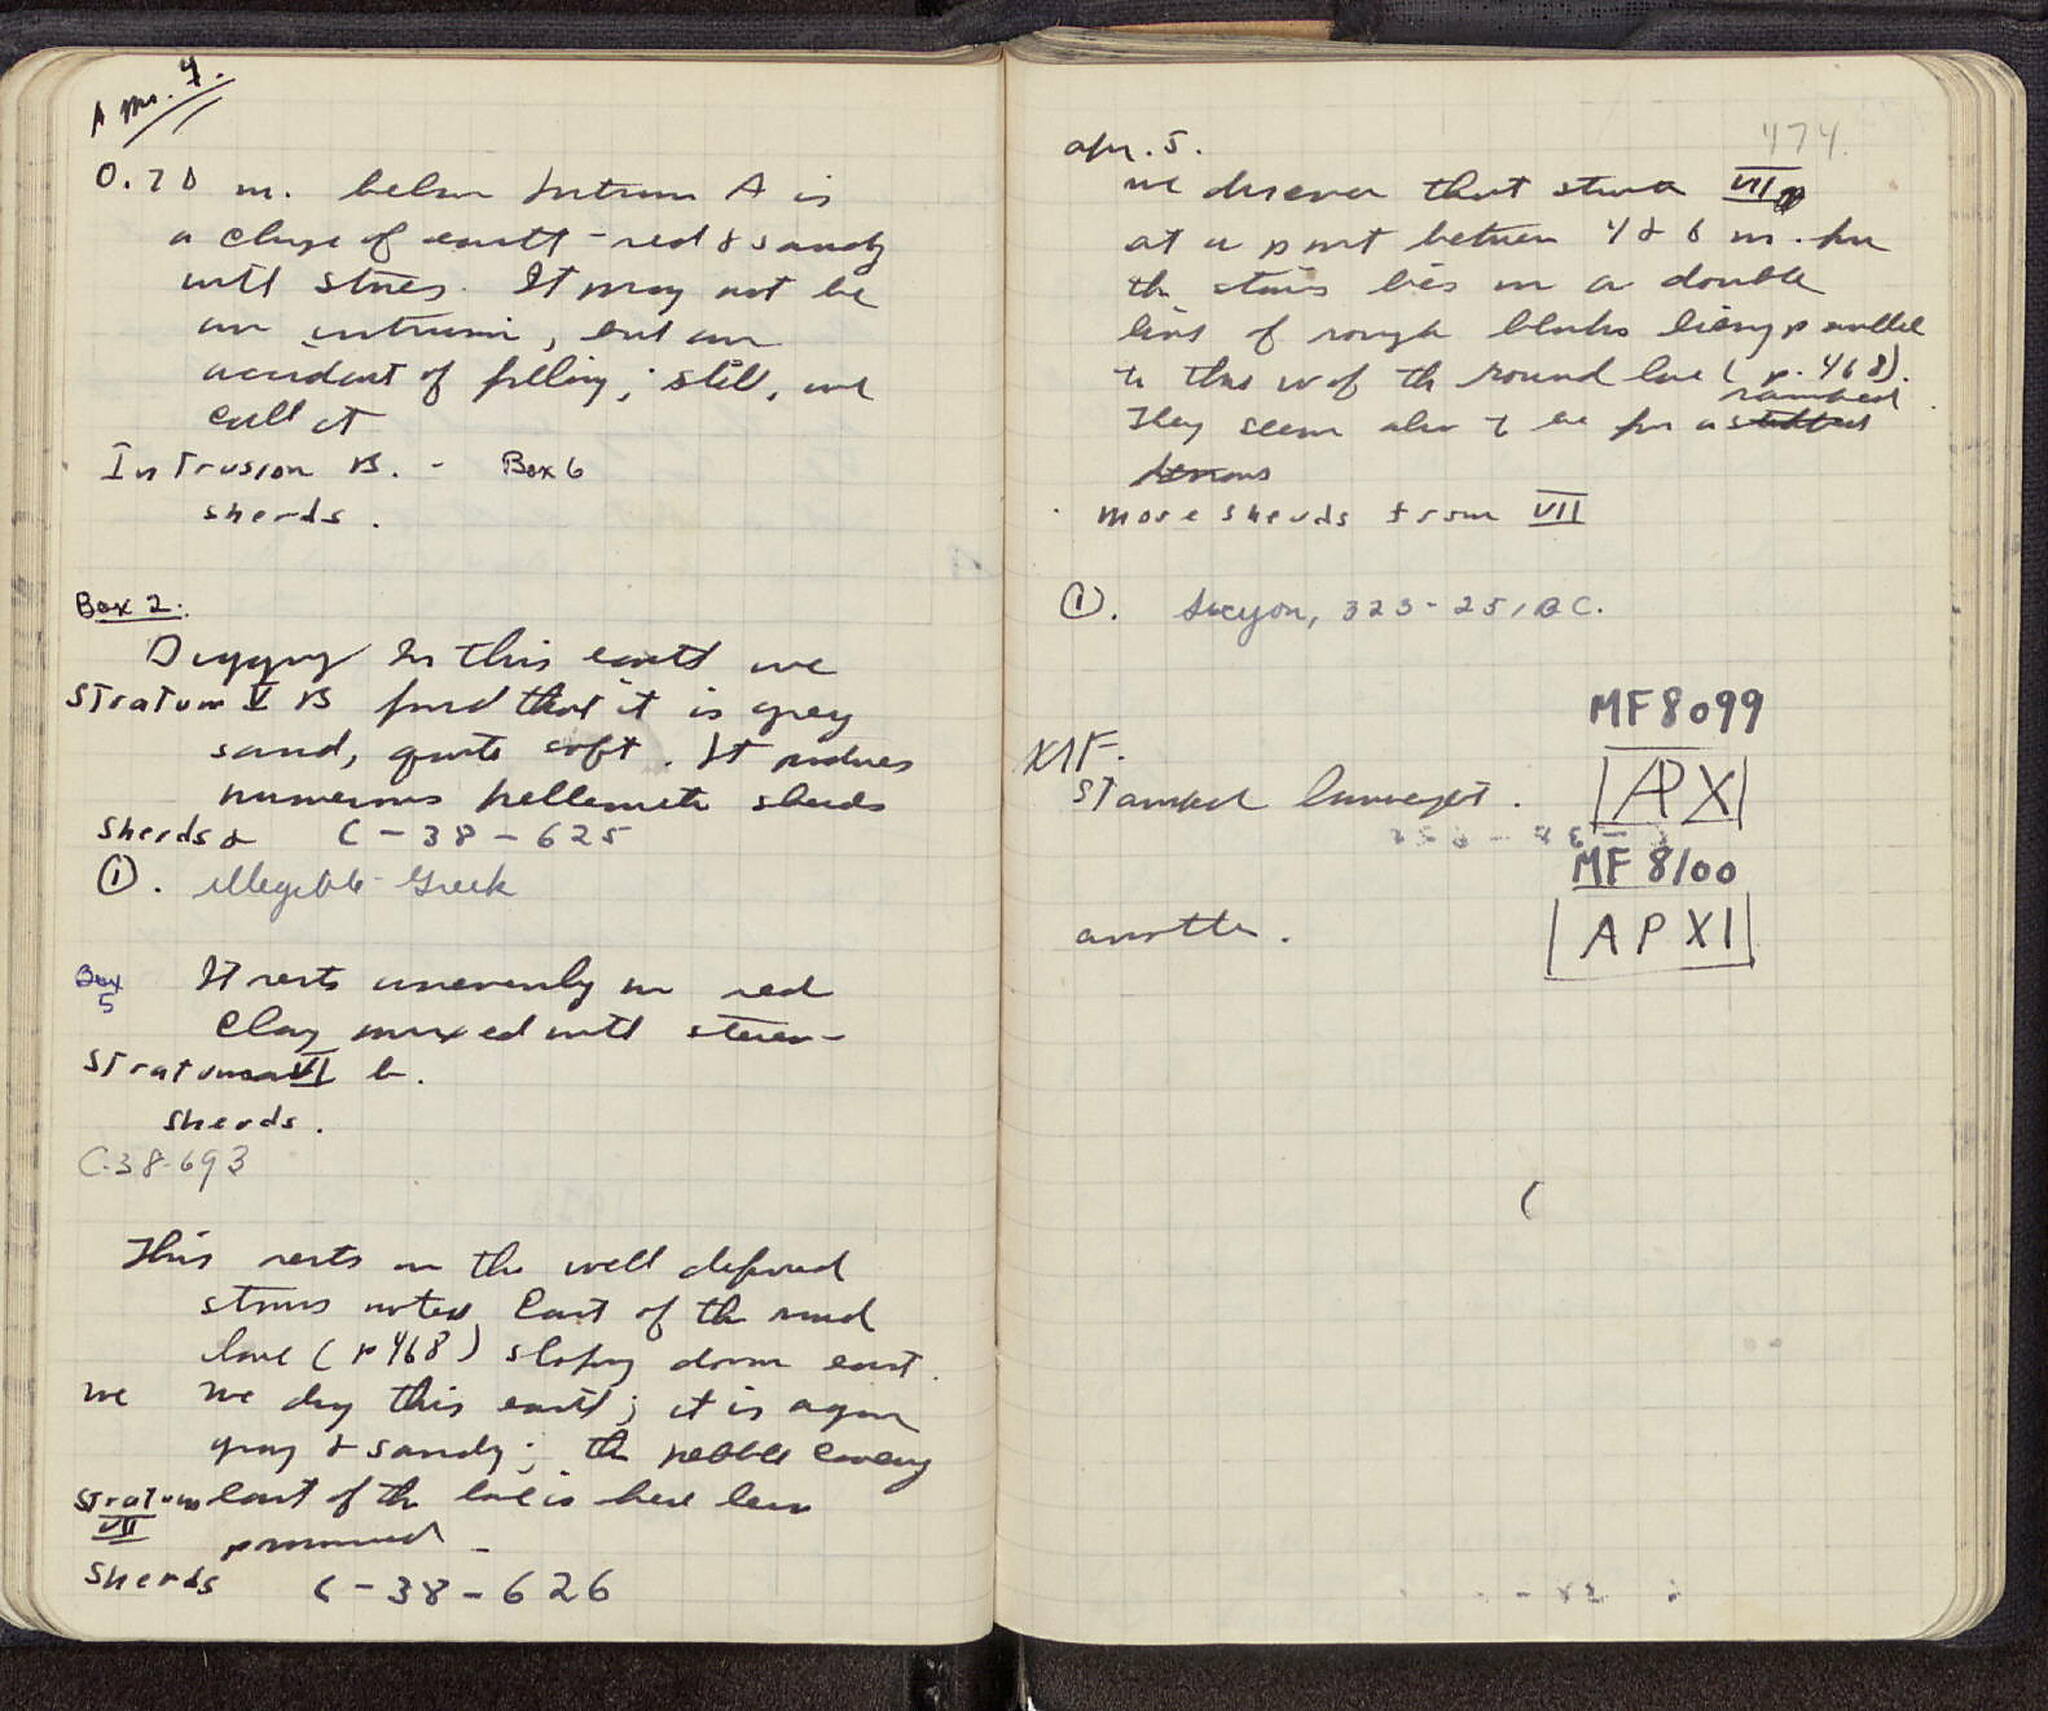 0.70 m. below Intrusion A is
a change of earth - red & sandy
with stones. It may not be
an intrusion, but an
accident of filling; still, we
call it
Intrusion B. - Box 6
sherds.
Box 2.
Digging in this earth we
Stratum V B find that it is grey
sand, quite soft. It produces
numerous hellenistic sherds
Sherds & C-38-625
①. illegible Greek
Box 5
It rests unevenly on red
clay mixed with
Stratum VI b.
Sherds.
C-38-693
This rests on the well defined
noted East of the round
base (p 468) sloping down east.
we We dig this earth; it is again
gray & sandy; the pebble covering
Stratum VII east of the is here less
pronounced
Sherds C-38-626
474.
Apr. 5.
we discover that VII
at a point between 4 & 6 m. from
the lies on a double
line of rough blocks lying parallel
to this W of the round base (p. 468).
They seem also to be for a
more sherds from VII
①. Sicyon, 323-251 BC.
MF 8099
XIF.
Stamped loomweight. APX
MF 8100
another. APXI